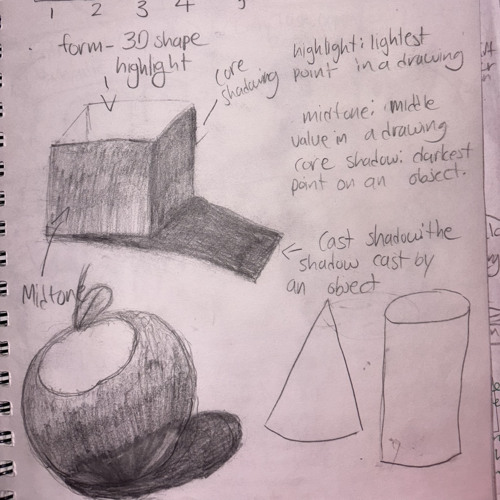 1 2 3 4 5
form - 3D shape
highlight
core
shadowing
highlight: lightest
point in a drawing
midtone: middle
value in a drawing
core shadow: darkest
point on an object.
Cast shadow: the
shadow cast by
an object
Midtone